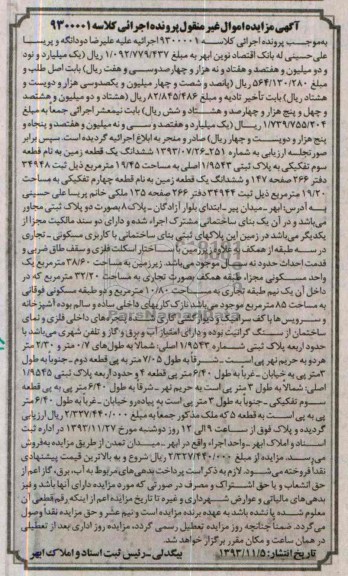 آگهی مزایده اموال غیر منقول پرونده اجرائی کلاسه ۹۳۰۰۰۰۱
به موجب پرونده اجرائی کلاسه ۹۳۰۰۰۰۱ اجرائیه علیه علیرضا دودانگه و پریسا
علی حسینی له بانک اقتصاد نوین ابهر به مبلغ ۱/۰۹۲/۷۷۹/۴۳۷ ریال (یک میلیارد و نود
و دو میلیون و هفتصد و هفتاد و نه هزار و چهارصد و سی و هفت ریال) بابت اصل طلب و
مبلغ ۵۶۴/۱۳۰/۲۸۰ ریال (پانصد و شصت و چهار میلیون و یکصد و سی هزار و دویست و
هشتاد ریال) بابت تأخیر تادیه و مبلغ ۸۲/۸۴۵/۴۸۶ ریال (هشتاد و دو میلیون و هشتصد
و چهل و پنج هزار و چهارصد و هشتاد و شش ریال) بابت نیمعشر اجرائی جمعا به مبلغ
۱/۷۳۹/۷۵۵/۲۰۴ ریال (یک میلیارد و هفتصد و سی و نه میلیون و هفتصد و پنجاه و
پنج هزار و دویست و چهار ریال) صادر و منجر به ابلاغ اجرائیه گردیده است. سپس برابر
صورتجلسه ارزیابی به شماره ۱۳۹۳/۰۷/۲۶.۲۵۱ ششدانگ یک قطعه زمین به نام قطعه
سوم تفکیکی به پلاک ثبتی ۱/۹۵۴۳ اصلی به مساحت ۱۹/۴۵ مترمربع ذیل ثبت ۳۴۹۴۸
دفتر ۲۶۶ صفحه ۱۴۷ و ششدانگ یک قطعه زمین به نام قطعه چهارم تفکیکی به مساحت
۱۹/۲۰ مترمربع ذیل ثبت ۳۴۹۴۴ دفتر ۲۶۶ صفحه ۱۳۵ ملکی خانم پریسا علی حسینی
به آدرس: ابهر - میدان پیر - ابتدای بلوار آزادگان - پلاک ۸ بصورت دو پلاک ثبتی مجاور
می باشد و در آن یک بنای ساختمانی مشترک اجراء شده و دارای دو سند مالکیت مجزا از
یکدیگر می باشد در زمین این پلاکهای ثبتی بنای ساختمانی با کاربری مسکونی - تجاری
در سه طبقه از همکف و علاوه زیرزمین با ساختار اسکلت فلزی و سقف طاق ضربی و
قدمت احداث حدود نه سال موجود می باشد. زیرزمین به مساحت ۳۸/۶۰ مترمربع یک
واحد مسکونی مجزا، طبقه همکف بصورت تجاری به مساحت ۳۲/۲۰ مترمربع که در
داخل آن یک نیم طبقه تجاری به مساحت ۱۰/۸۰ مترمربع و دو طبقه مسکونی فوقانی
به مساحت ۸۵ مترمربع موجود می باشد نازک کاریهای داخلی ساده و سالم بوده آشپزخانه
ساختمان از سنگ گرانیت بوده و دارای امتیاز آب و برق و گاز و تلفن شهری می باشد با
حدود اربعه پلاک ثبتی شماره ۱/۹۵۴۳ اصلی: شمالا به طولهای ۰/۷ متر و ۲/۳۰ متر
هر دو به حریم نهر پی است - شرقا به طول ۷/۰۵ متر به پی قطعه دوم - جنوبا به طول
۳ متر پی به خیابان - غربا به طول ۶/۴۰ متر پی قطعه ۴ و حدود اربعه پلاک ثبتی ۱/۹۵۴۵
اصلی: شمالا به طول ۳ متر پی است به حریم نهر - شرقا به طول ۶/۴۰ متر پی به پی قطعه
سوم تفکیکی - جنوبا به طول ۳ متر پی است به پیاده رو خیابان - غربا به طول ۶/۴۰ متر
پی به پی است به قطعه ۵ که ملک مذکور جمعا به مبلغ ۲/۲۳۷/۴۴۰/۰۰۰ ریال ارزیابی
گردیده و پلاک فوق از ساعت ۹ الی ۱۲ روز دوشنبه مورخ ۱۳۹۳/۱۱/۲۷ در اداره ثبت
اسناد و املاک ابهر - واحد اجرا، واقع در ابهر - میدان تمدن از طریق مزایده به فروش
می رسد. مزایده از مبلغ ۲/۲۲۷/۴۴۰/۰۰۰ ریال شروع و به بالاترین قیمت پیشنهادی
نقدا فروخته می شود. لازم به ذکر است پرداخت بدهی های مربوط به آب، برق، گاز اعم از
حق انشعاب و یا حق اشتراک و مصرف در صورتی که مورد مزایده دارای آنها باشد و نیز
بدهی های مالیاتی و عوارض شهرداری و غیره تا تاریخ مزایده اعم از اینکه رقم قطعی آن
معلوم شده یا نشده باشد به عهده برنده مزایده است و نیم عشر و حق مزایده نقدا وصول
می گردد. ضمنا چنانچه روز مزایده تعطیل رسمی گردد، مزایده روز اداری بعد از تعطیلی
در همان ساعت و مکان مقرر برگزار خواهد شد.
تاریخ انتشار: ۱۳۹۳/۱۱/۵ بیگدلی - رئیس ثبت اسناد و املاک ابهر